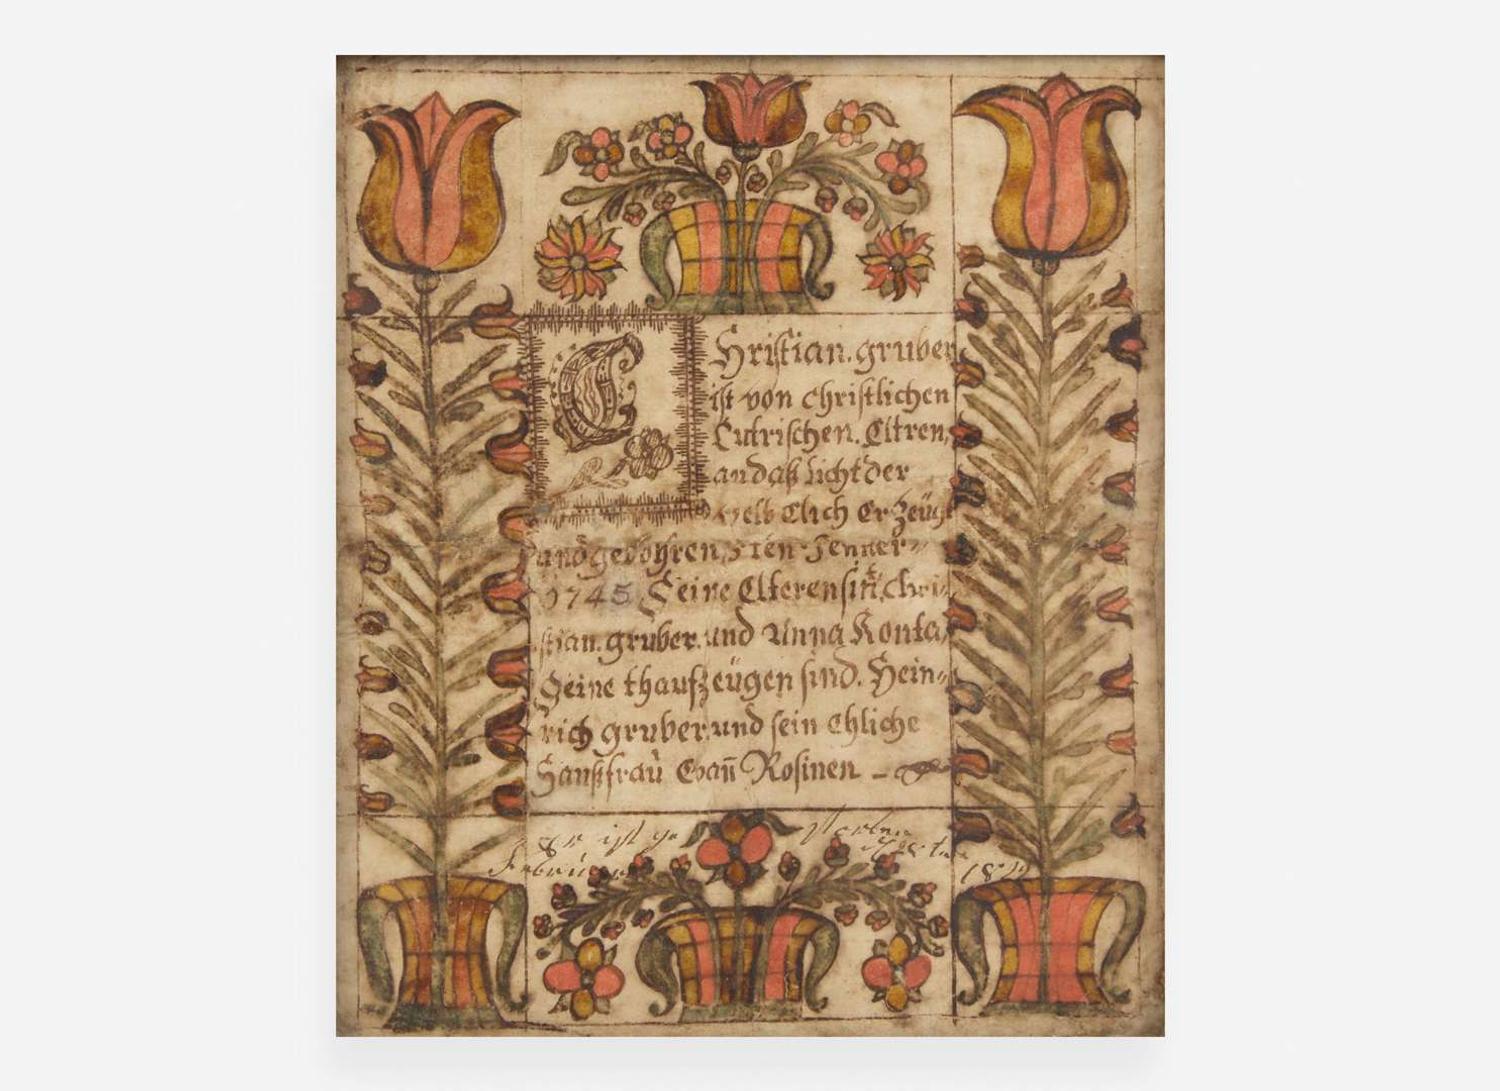 C
Hristian. gruber
ist von christlichen
Lutrischen. Eltren,
an daß licht der
welb Elich Er Zeügt
and gebohren, 5ten Jenner〃
1745 Seine Elteren sint, chri〃
stian. gruber. und Anna Konta,
Seine thaufzeügen sind. Hein〃
rich gruber. und sein Ehliche
Haußfrau Evañ Rosinen
Er ist ge storben
1819